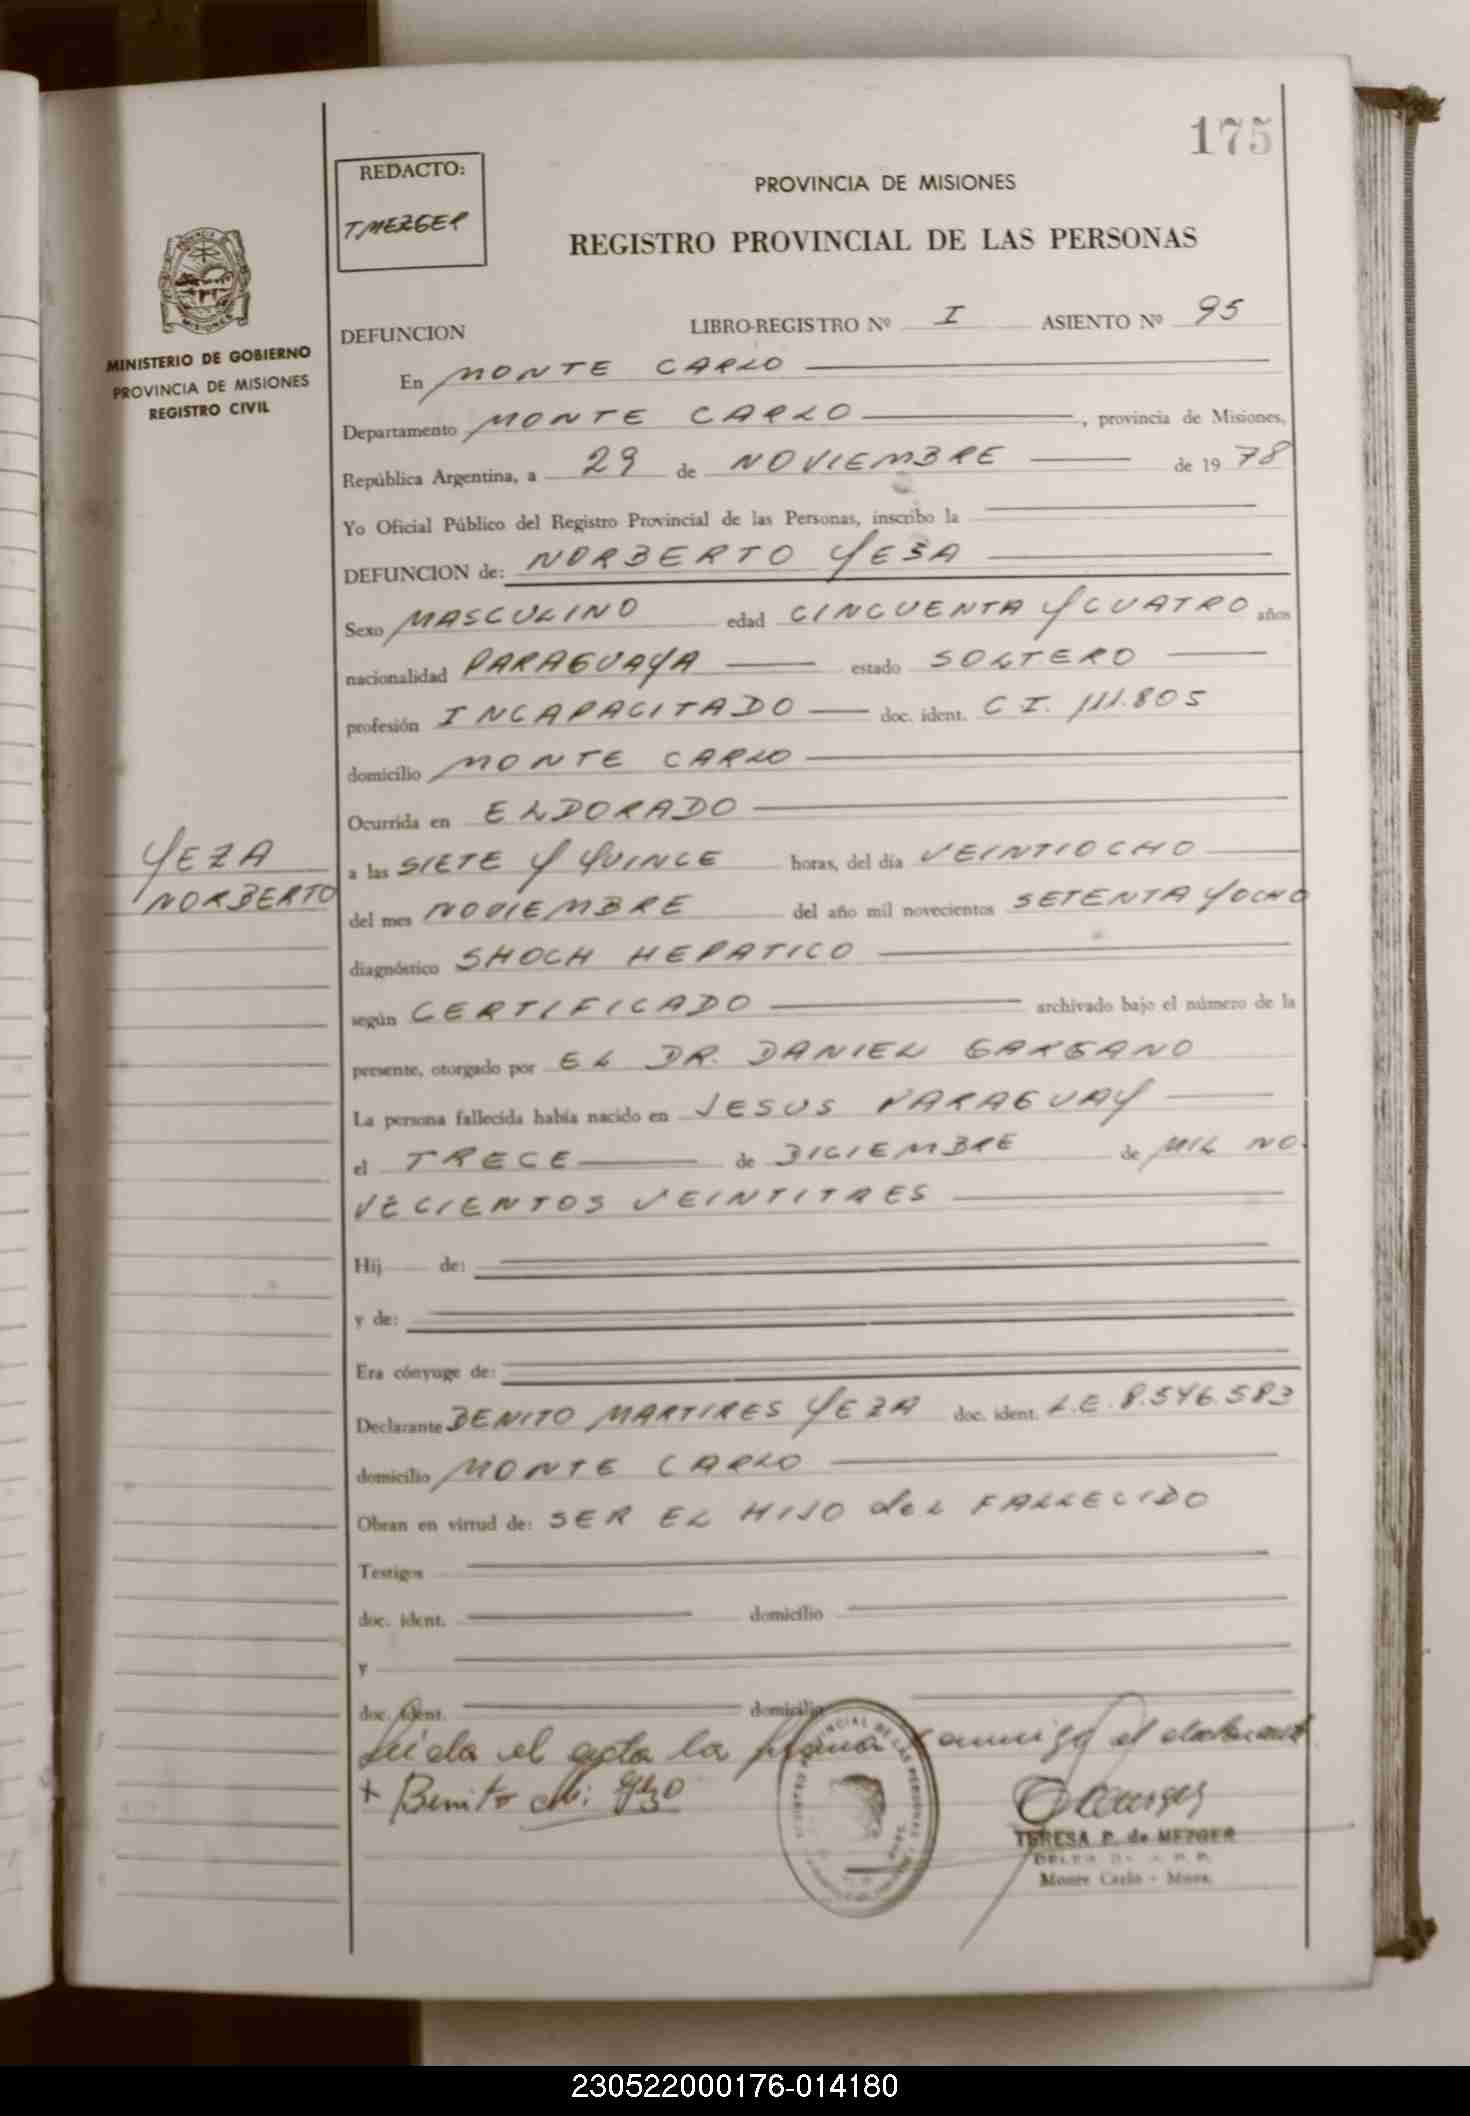 175
REDACTO:
T. MEZGER
PROVINCIA DE MISIONES
REGISTRO PROVINCIAL DE LAS PERSONAS
MINISTERIO DE GOBIERNO
PROVINCIA DE MISIONES
REGISTRO CIVIL
DEFUNCION LIBRO-REGISTRO Nº I ASIENTO Nº 95
En MONTE CARLO
Departamento MONTE CARLO, provincia de Misiones,
República Argentina, a 29 de NOVIEMBRE de 1978
Yo Oficial Público del Registro Provincial de las Personas, inscribo la
DEFUNCION de: NORBERTO YEZA
Sexo MASCULINO edad CINCUENTA Y CUATRO años
nacionalidad PARAGUAYA estado SOLTERO
profesión INCAPACITADO doc. ident. C I. 111.805
domicilio MONTE CARLO
Ocurrida en ELDORADO
YEZA
NORBERTO
a las SIETE Y QUINCE horas, del día VEINTIOCHO
del mes NOVIEMBRE del año mil novecientos SETENTA Y OCHO
diagnóstico SHOCH HEPATICO
según CERTIFICADO archivado bajo el número de la
presente, otorgado por EL DR. DANIEL GARGANO
La persona fallecida había nacido en JESUS PARAGUAY
el TRECE de DICIEMBRE de MIL NO-
VECIENTOS VEINTITRES
Hij de:
y de:
Era cónyuge de:
Declarante BENITO MARTIRES YEZA doc. ident. L.E. 8.546.583
domicilio MONTE CARLO
Obran en virtud de: SER EL HIJO del FALLECIDO
Testigos
doc. ident. domicilio
y
doc. ident. domicilio
Leida el acta la firma conmigo el declarante
+ Benito
TERESA P. de MEZGER
Monte Carlo - Mnes.
230522000176-014180